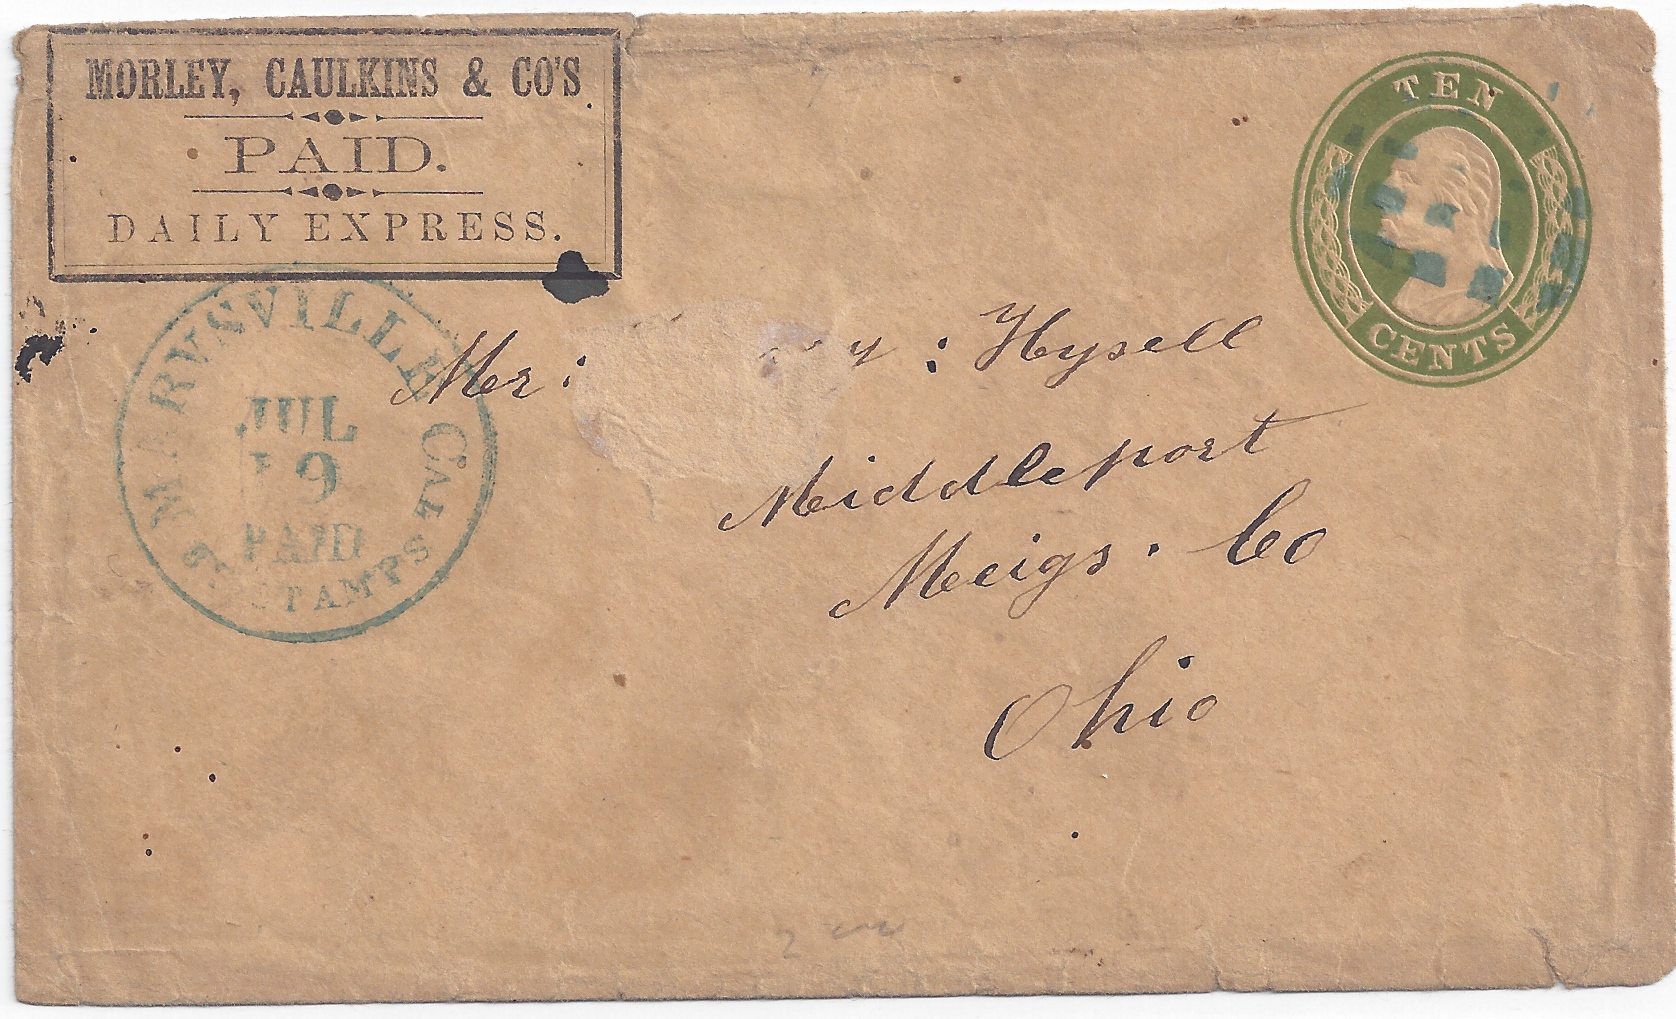 MORLEY, CAULKINS & CO'S
PAID.
DAILY EXPRESS.
TEN
CENTS
MARYSVILLE CAL
JUL
19
PAID
STAMPS
Mr: : Hysell
Middleport
Meigs. Co
Ohio